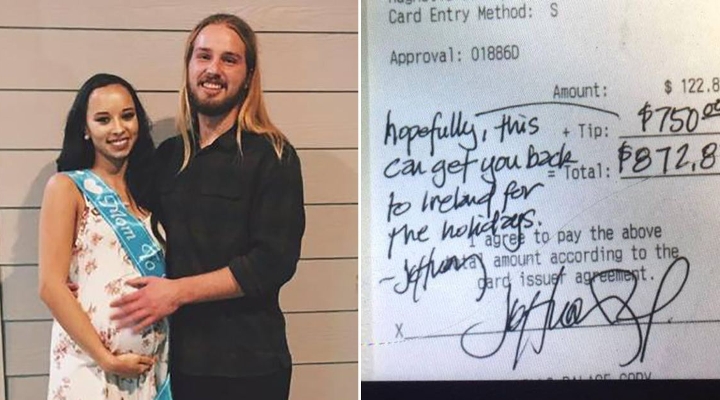 Mom to
Card Entry Method: S
Approval: 01886D
Amount: $ 122.8
+ Tip: $750 00
= Total: $872,8
hopefully, this
can get you back
to Ireland for
the holidays.
- Jeffrey
I agree to pay the above
amount according to the
card issuer agreement.
X
COPY